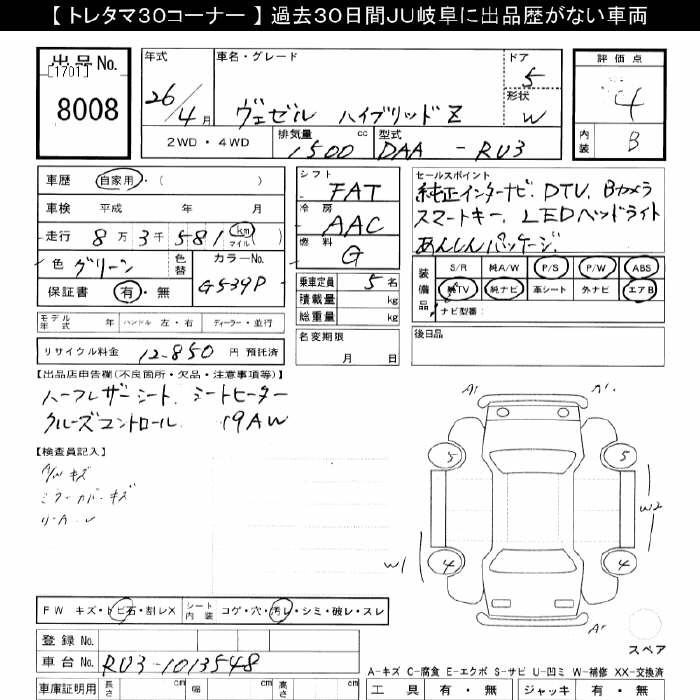 【 トレタマ30コーナー 】 過去30日間JU岐阜に出品歴がない車両
出品No.
[1701]
8008
年式
26/4月
車名・グレード
ヴェゼル ハイブリッドZ
ドア
5
形状
W
評価点
4
内装
B
2WD・4WD
排気量 cc
1500
型式
DAA - RU3
車歴 自家用・( )
車検 平成 年 月
走行 8万3千581 km(マイル)
色 グリーン
色替
カラーNo.
G539P
保証書 有・無
シフト
FAT
冷房
AAC
燃料
G
乗車定員 5名
積載量 kg
総重量 kg
セールスポイント
純正インターナビ、DTV、Bカメラ
スマートキー、LEDヘッドライト
あんしんパッケージ
装備品
S/R 純A/W P/S P/W ABS
純TV 純ナビ 革シート 外ナビ エアB
ナビ型番:
モデル年式 年 ハンドル 左・右 ディーラー・並行
リサイクル料金 12,850 円 預託済
名変期限
月 日
後日品
【出品店申告欄(不良箇所・欠品・注意事項等)】
ハーフレザーシート、シートヒーター
クルーズコントロール 19AW
【検査員記入】
A/W キズ
ミラーカバーキズ
リA、レ
A1 A1
5 5
W2
W1 4 4
A1
スペア
FW キズ・トビ石・割レX
シート内装 コゲ・穴・汚レ・シミ・破レ・スレ
登録No.
車台No. RU3-1013548
車庫証明用 長さ cm 幅 cm 高さ cm
A-キズ C-腐食 E-エクボ S-サビ U-凹ミ W-補修 XX-交換済
工具 有・無 ジャッキ 有・無